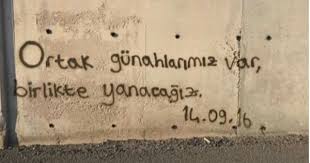 Ortak günahlarımız var,
birlikte yanacağız.
14.09.16